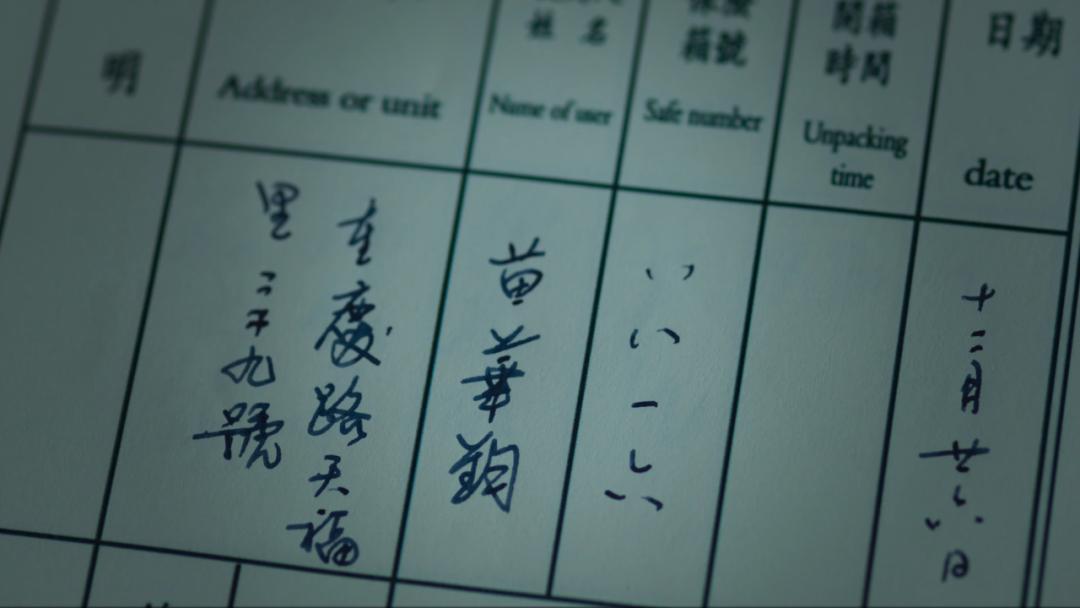 日期
date
十二月廿六日
開箱
時間
Unpacking
time
箱號
Safe number
八八一六
姓名
Name of user
黄華鈞
Address or unit
重慶路天福
里三十九號
明